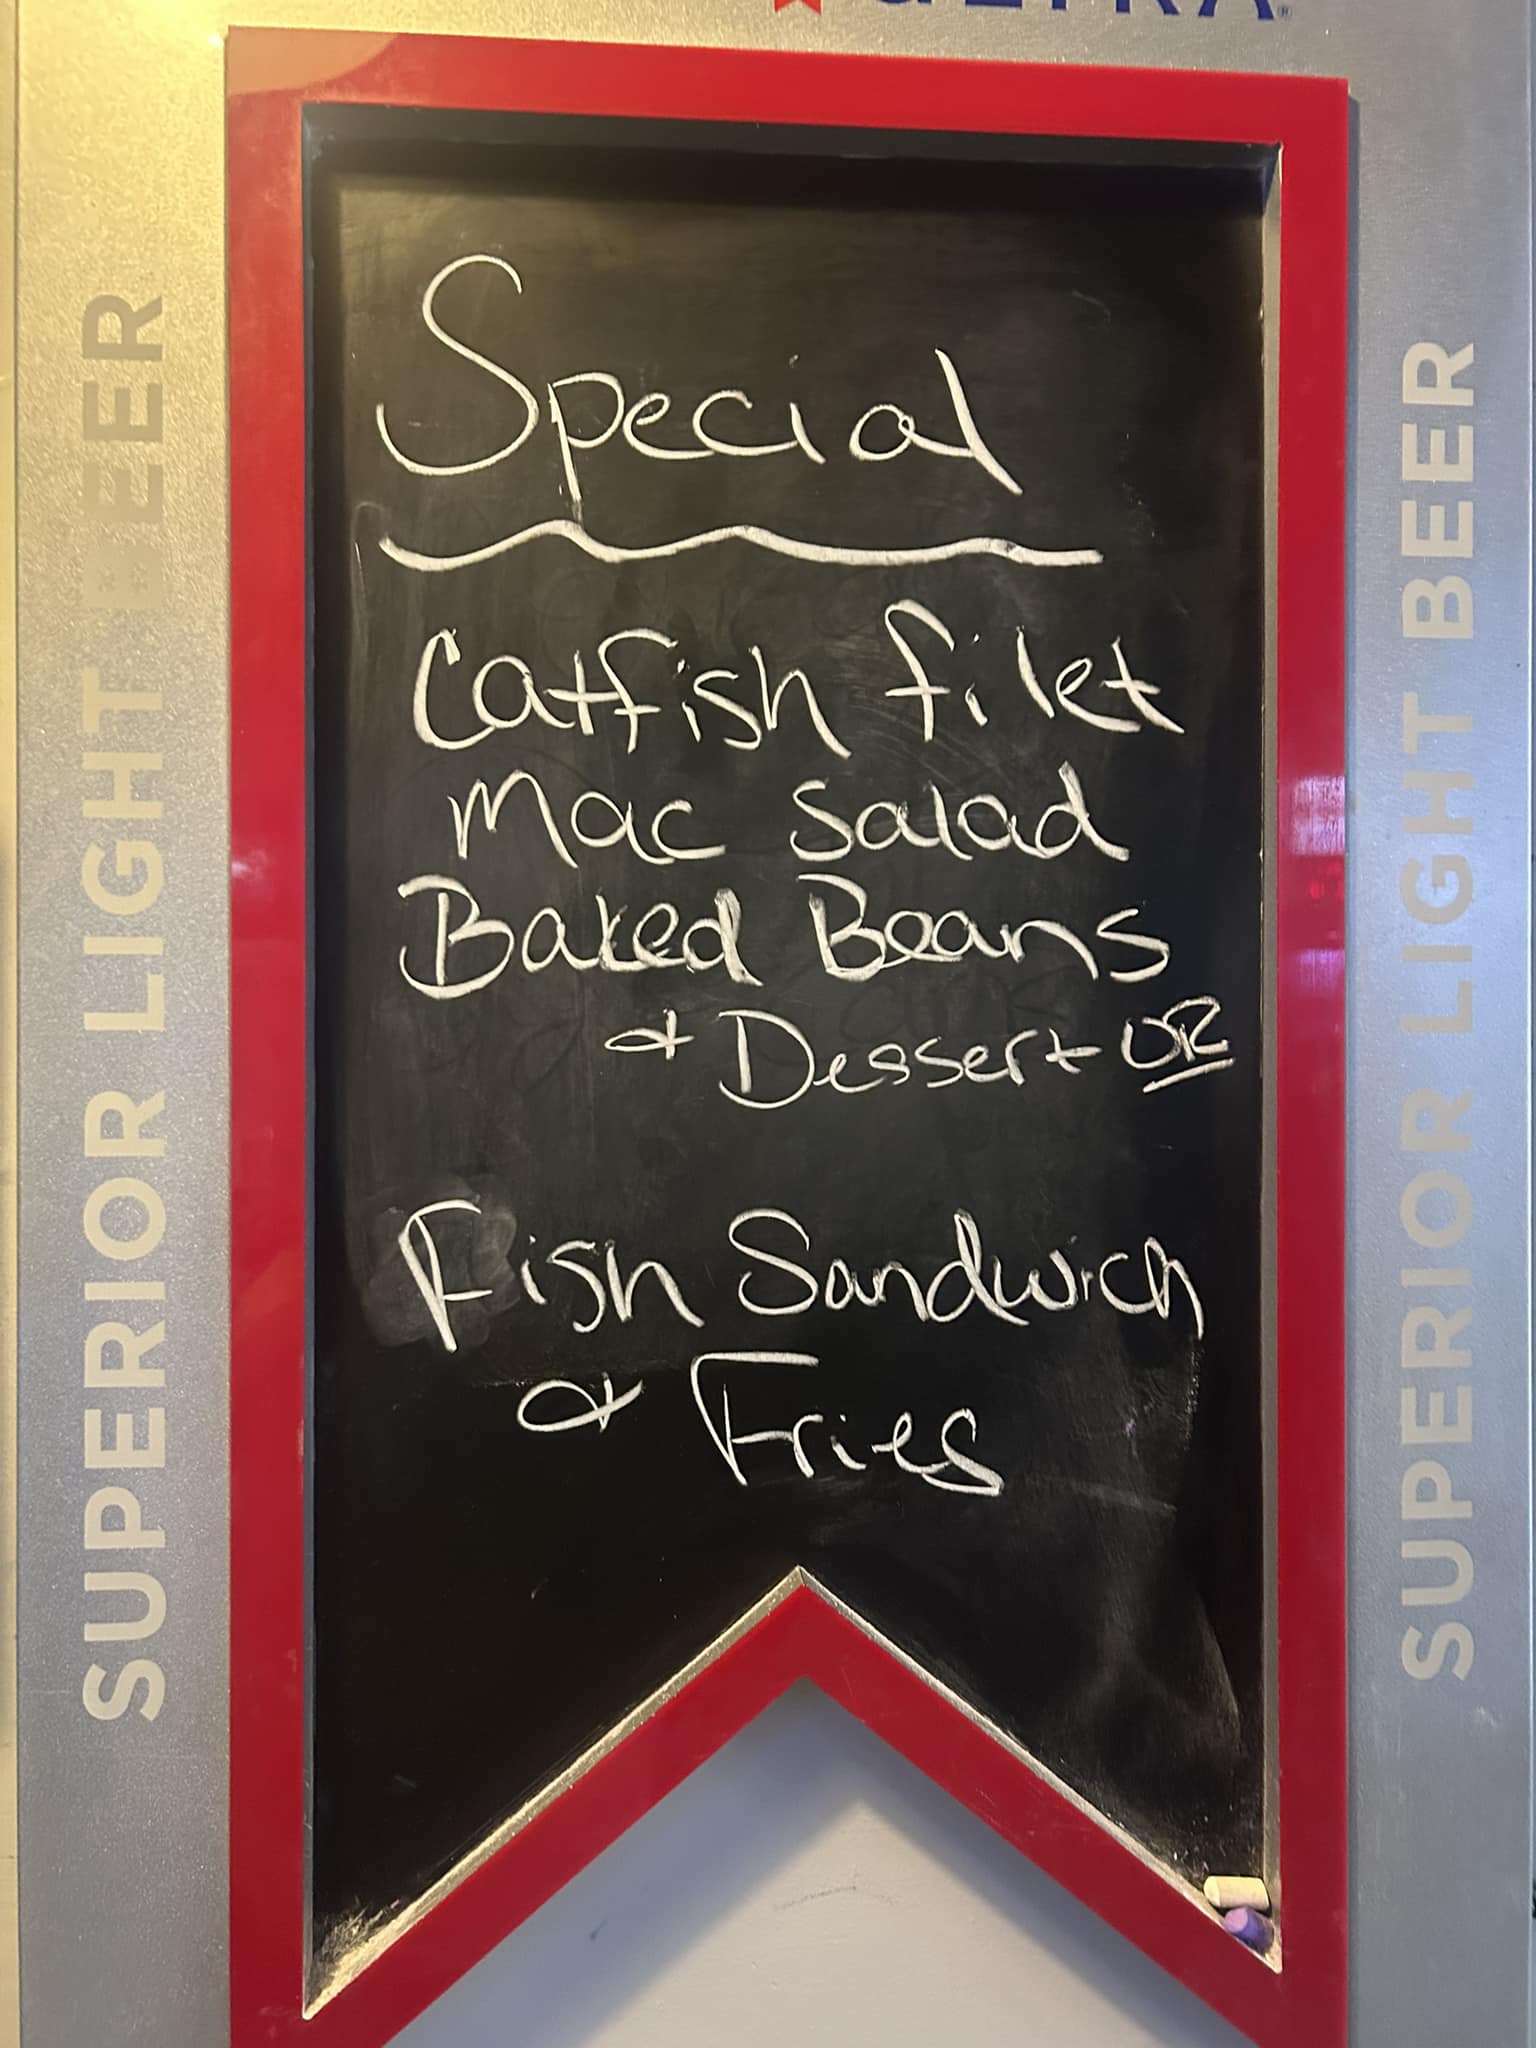 Special
Catfish filet
Mac Salad
Baked Beans
& Dessert OR
Fish Sandwich
& Fries
SUPERIOR LIGHT BEER
SUPERIOR LIGHT BEER